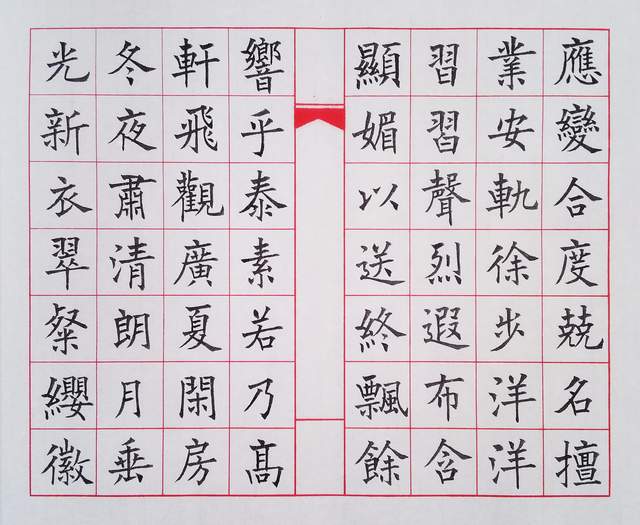 應變合度兢名擅
業安軌徐步洋洋
習習聲烈遐布含
顯媚以送終飄餘
響乎泰素若乃高
軒飛觀廣夏閑房
冬夜肅清朗月垂
光新衣翠粲纓徽